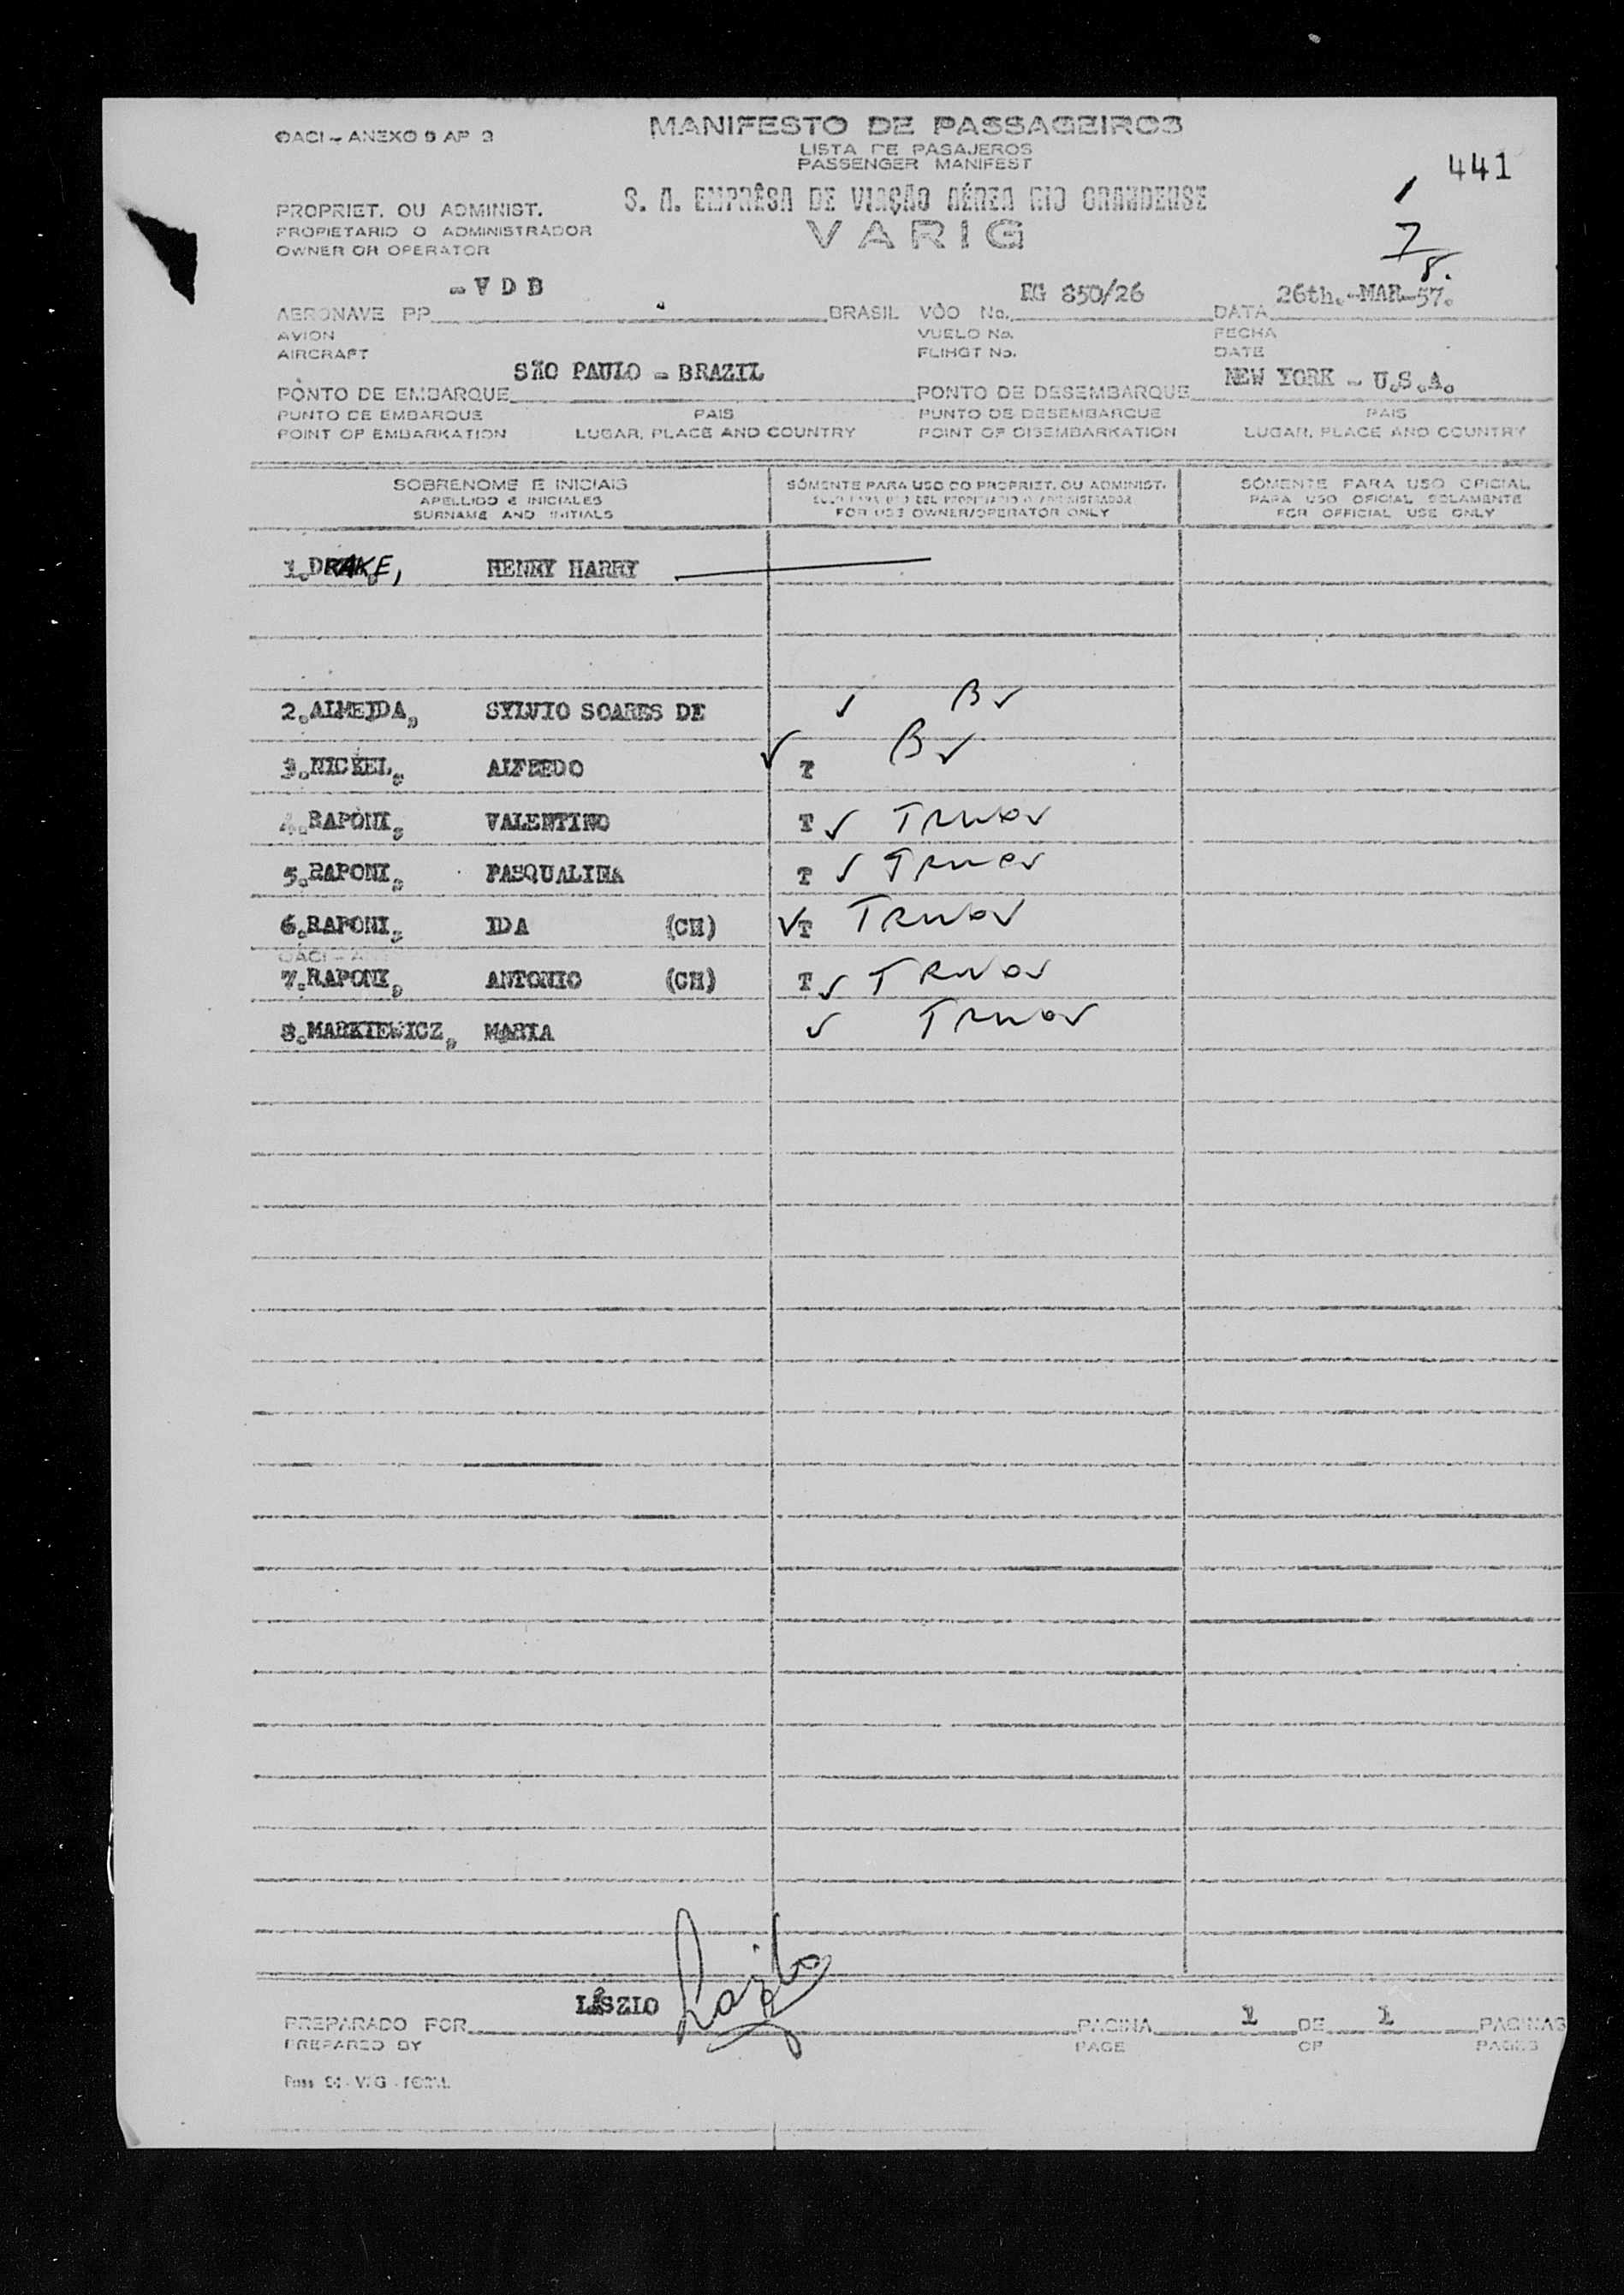 OACI - ANEXO 9 AP 3
MANIFESTO DE PASSAGEIROS
LISTA DE PASAJEROS
PASSENGER MANIFEST
441
S. A. EMPRÊSA DE VIAÇÃO AÉREA RIO GRANDENSE
VARIG
PROPRIET. OU ADMINIST.
PROPIETARIO O ADMINISTRADOR
OWNER OR OPERATOR
1
7
8.
AERONAVE PP - V D B BRASIL VÔO No. RG 850/26 DATA 26th.-MAR-57.
AVION VUELO No. FECHA
AIRCRAFT FLIHGT No. DATE
PONTO DE EMBARQUE SÃO PAULO - BRAZIL PONTO DE DESEMBARQUE NEW YORK - U.S.A.
PUNTO DE EMBARQUE PAIS PUNTO DE DESEMBARQUE PAIS
POINT OF EMBARKATION LUGAR, PLACE AND COUNTRY POINT OF DISEMBARKATION LUGAR, PLACE AND COUNTRY
SOBRENOME E INICIAIS SÓMENTE PARA USO DO PROPRIET. OU ADMINIST. SÓMENTE PARA USO OFICIAL
APELLIDO E INICIALES SOLO PARA USO DEL PROPIETARIO O ADMINISTRADOR PARA USO OFICIAL SOLAMENTE
SURNAME AND INITIALS FOR USE OWNER/OPERATOR ONLY FOR OFFICIAL USE ONLY
1.DRAKE, HENRY HARRY
2.ALMEIDA, SYLVIO SOARES DE ✓ B ✓
3.NICKEL, ALFREDO ✓ T B ✓
4.RAPONI, VALENTINO T ✓
5.RAPONI, PASQUALINA T ✓
6.RAPONI, IDA (CH) ✓ T
7.RAPONI, ANTONIO (CH) T ✓
8.MARKIEWICZ, MARIA ✓
PREPARADO POR LÁSZLO Laszlo PAGINA 1 DE 1 PAGINAS
PREPARED BY PAGE OF PAGES